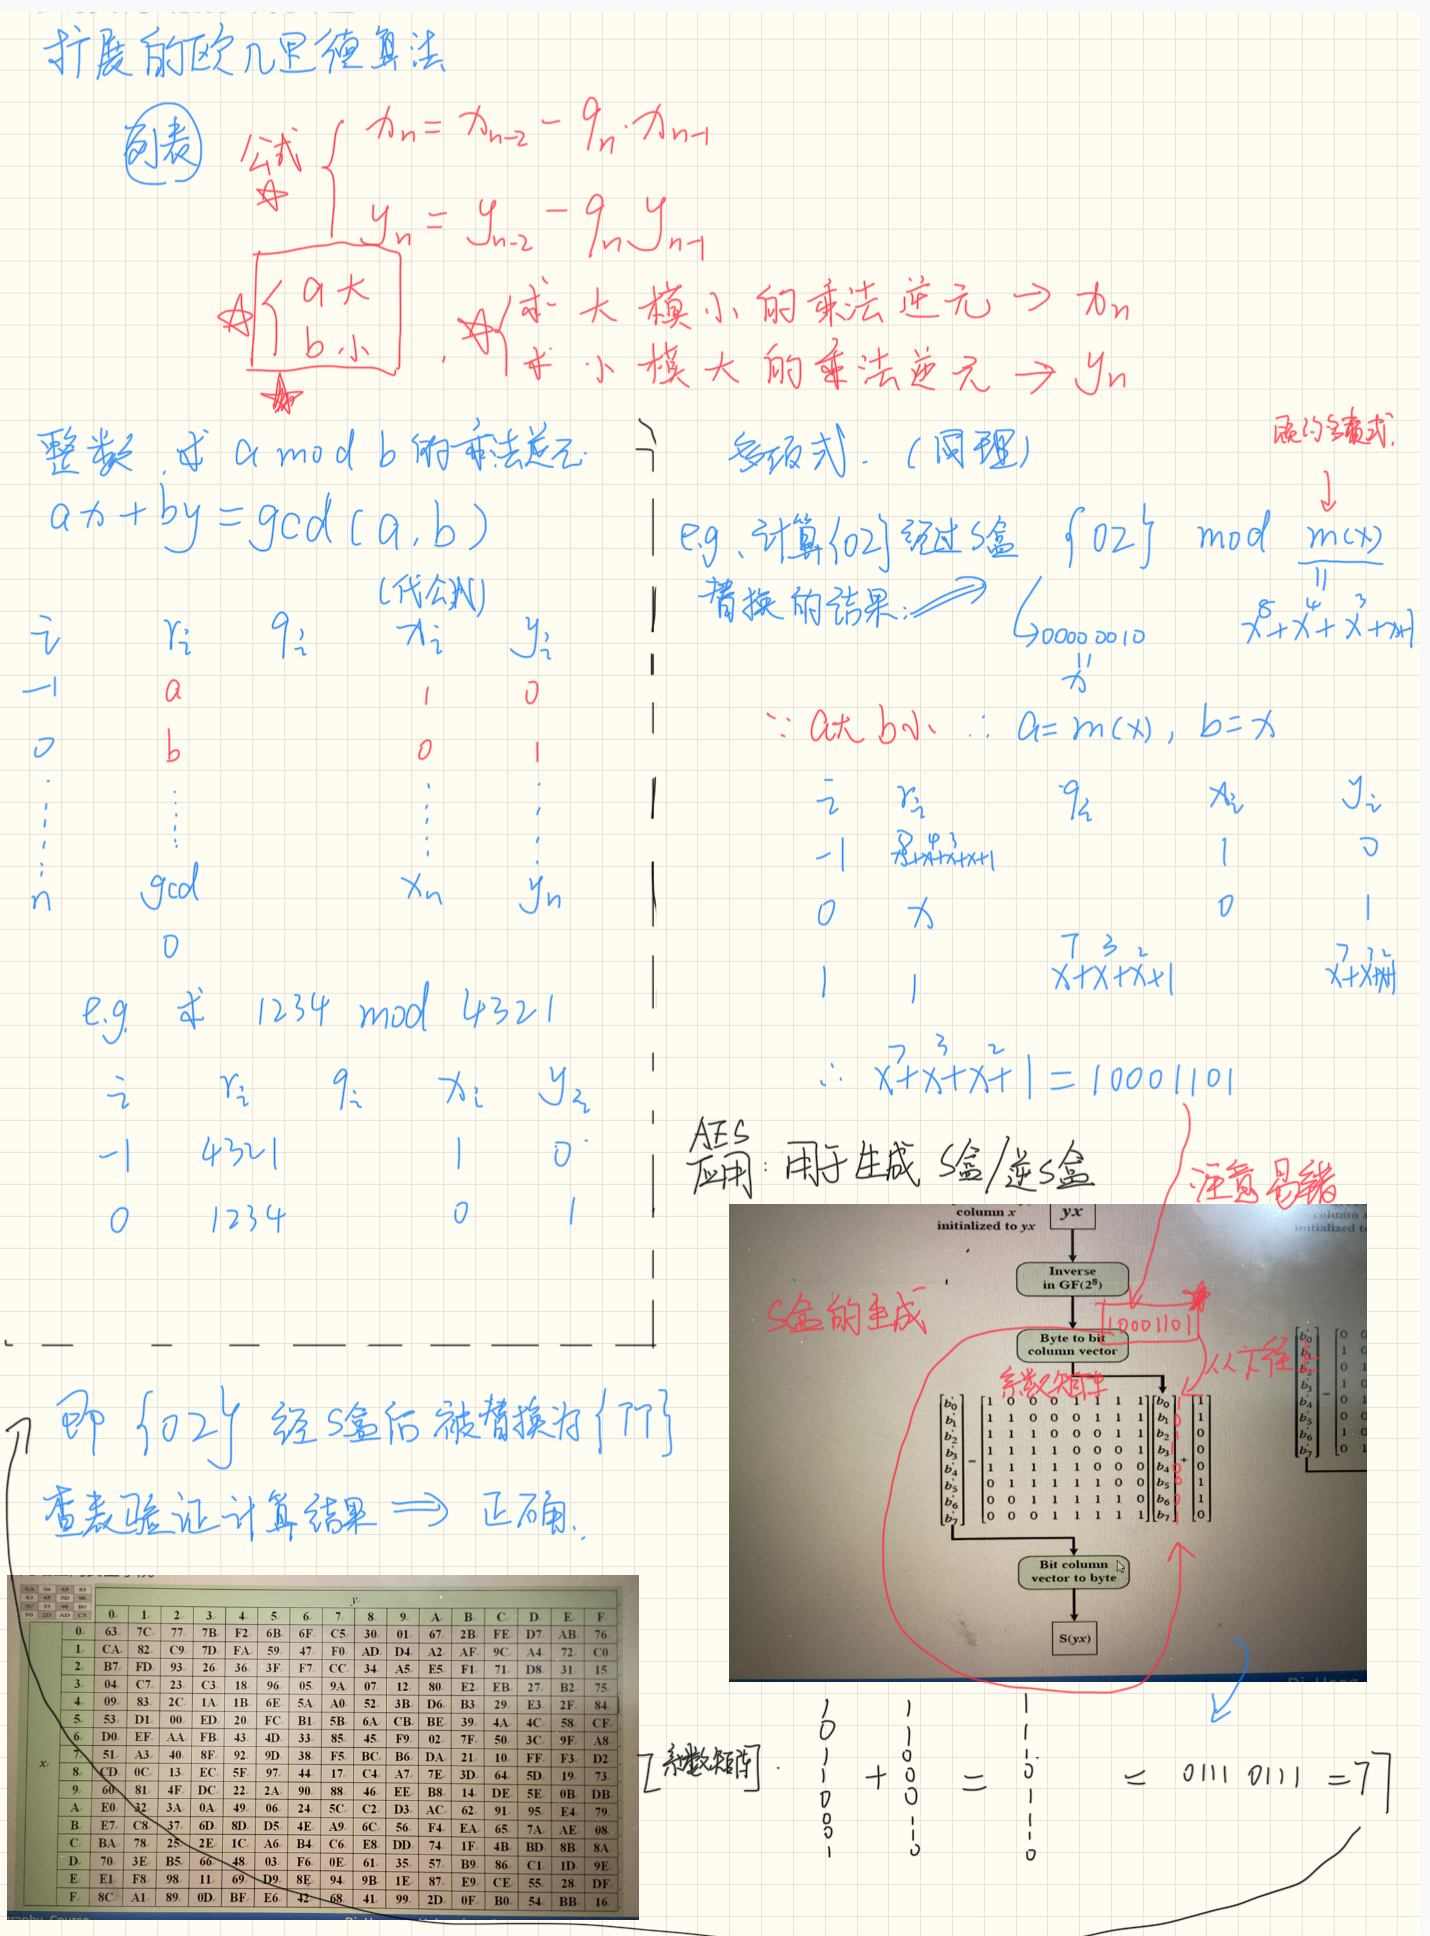 扩展的欧几里德算法
列表
公式
xn = xn-2 - qn·xn-1
yn = yn-2 - qn yn-1
a大
b小
求大模小的乘法逆元 → xn
求小模大的乘法逆元 → yn
整数,求 a mod b 的乘法逆元
ax+by=gcd(a,b)
(代公式)
i ri qi xi yi
-1 a 1 0
0 b 0 1
n gcd xn yn
0
e.g. 求 1234 mod 4321
i ri qi xi yi
-1 4321 1 0
0 1234 0 1
多项式.(同理)
既约多项式.
e.g. 计算{02}经过S盒 {02} mod m(x)
替换的结果:
00000010
=
x
x⁸+x⁴+x³+x+1
∵ a大 b小 ∴ a=m(x), b=x
i ri qi xi yi
-1 x⁸+x⁴+x³+x+1 1 0
0 x 0 1
1 1 x⁷+x³+x²+1 x⁷+x³+x²+1
∴ x⁷+x³+x²+1=10001101
AES
应用: 用于生成 S盒/逆S盒
注意易错
column x
initialized to yx
yx
Inverse
in GF(2⁸)
S盒的生成
10001101
Byte to bit
column vector
系数矩阵
从下往上
b0' 1 0 0 0 1 1 1 1 b0 1 1
b1' 1 1 0 0 0 1 1 1 b1 0 1
b2' 1 1 1 0 0 0 1 1 b2 1 0
b3' 1 1 1 1 0 0 0 1 b3 1 0
b4' 1 1 1 1 1 0 0 0 b4 0 0
b5' 0 1 1 1 1 1 0 0 b5 0 1
b6' 0 0 1 1 1 1 1 0 b6 0 1
b7' 0 0 0 1 1 1 1 1 b7 1 0
Bit column
vector to byte
S(yx)
即 {02} 经S盒后被替换为{77}
查表验证计算结果 ⇒ 正确.
y
0 1 2 3 4 5 6 7 8 9 A B C D E F
0 63 7C 77 7B F2 6B 6F C5 30 01 67 2B FE D7 AB 76
1 CA 82 C9 7D FA 59 47 F0 AD D4 A2 AF 9C A4 72 C0
2 B7 FD 93 26 36 3F F7 CC 34 A5 E5 F1 71 D8 31 15
3 04 C7 23 C3 18 96 05 9A 07 12 80 E2 EB 27 B2 75
4 09 83 2C 1A 1B 6E 5A A0 52 3B D6 B3 29 E3 2F 84
5 53 D1 00 ED 20 FC B1 5B 6A CB BE 39 4A 4C 58 CF
6 D0 EF AA FB 43 4D 33 85 45 F9 02 7F 50 3C 9F A8
x 7 51 A3 40 8F 92 9D 38 F5 BC B6 DA 21 10 FF F3 D2
8 CD 0C 13 EC 5F 97 44 17 C4 A7 7E 3D 64 5D 19 73
9 60 81 4F DC 22 2A 90 88 46 EE B8 14 DE 5E 0B DB
A E0 32 3A 0A 49 06 24 5C C2 D3 AC 62 91 95 E4 79
B E7 C8 37 6D 8D D5 4E A9 6C 56 F4 EA 65 7A AE 08
C BA 78 25 2E 1C A6 B4 C6 E8 DD 74 1F 4B BD 8B 8A
D 70 3E B5 66 48 03 F6 0E 61 35 57 B9 86 C1 1D 9E
E E1 F8 98 11 69 D9 8E 94 9B 1E 87 E9 CE 55 28 DF
F 8C A1 89 0D BF E6 42 68 41 99 2D 0F B0 54 BB 16
1 1 1
0 1 1
1 0 1
[系数矩阵]· 1 + 0 = 0 = 0111 0111 = 77
0 0 1
0 1 1
0 1 1
1 0 0